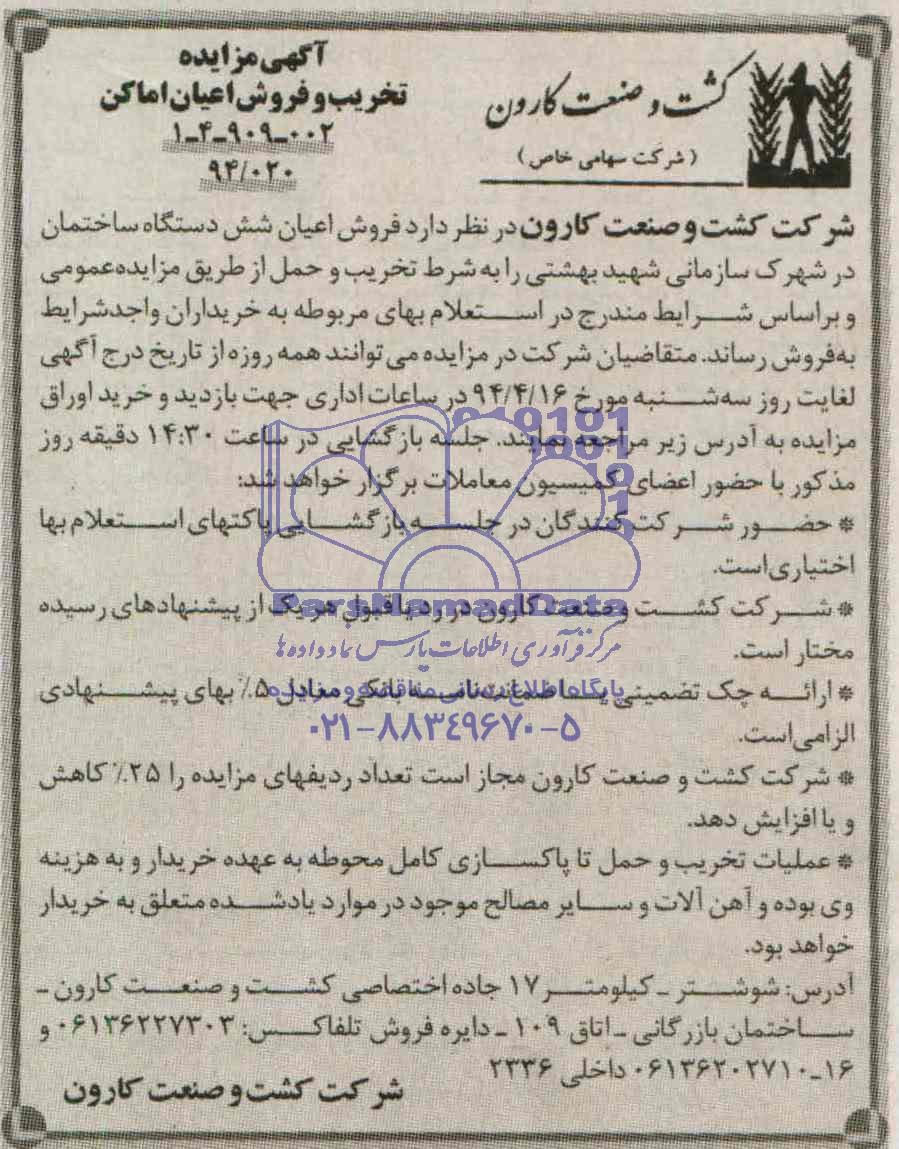 آگهی مزایده
تخریب و فروش اعیان اماکن
۱-۴-۹۰۹-۰۰۲
۹۴/۰۲۰
کشت و صنعت کارون
(شرکت سهامی خاص)
شرکت کشت و صنعت کارون در نظر دارد فروش اعیان شش دستگاه ساختمان
در شهرک سازمانی شهید بهشتی را به شرط تخریب و حمل از طریق مزایده عمومی
و براساس شرایط مندرج در استعلام بهای مربوطه به خریداران واجدشرایط
به‌فروش رساند. متقاضیان شرکت در مزایده می‌توانند همه روزه از تاریخ درج آگهی
لغایت روز سه‌شنبه مورخ ۹۴/۴/۱۶ در ساعات اداری جهت بازدید و خرید اوراق
مزایده به آدرس زیر مراجعه نمایند. جلسه بازگشایی در ساعت ۱۴:۳۰ دقیقه روز
مذکور با حضور اعضای کمیسیون معاملات برگزار خواهد شد:
* حضور شرکت‌کنندگان در جلسه بازگشایی پاکتهای استعلام بها
اختیاری‌است.
* شرکت کشت وصنعت کارون در رد یا قبول هر یک از پیشنهادهای رسیده
مختار است.
* ارائه چک تضمینی یا ضمانت‌نامه بانکی معادل ۵٪ بهای پیشنهادی
الزامی‌است.
* شرکت کشت و صنعت کارون مجاز است تعداد ردیفهای مزایده را ۲۵٪ کاهش
و یا افزایش دهد.
* عملیات تخریب و حمل تا پاکسازی کامل محوطه به عهده خریدار و به هزینه
وی بوده و آهن آلات و سایر مصالح موجود در موارد یادشده متعلق به خریدار
خواهد بود.
آدرس: شوشتر ـ کیلومتر ۱۷ جاده اختصاصی کشت و صنعت کارون ـ
ساختمان بازرگانی ـ اتاق ۱۰۹ ـ دایره فروش تلفاکس: ۰۶۱۳۶۲۲۷۳۰۳ و
۱۶-۰۶۱۳۶۲۰۲۷۱۰ داخلی ۲۳۳۶
شرکت کشت و صنعت کارون
ParsNamadData
مرکز فرآوری اطلاعات پارس نماد داده ها
پایگاه اطلاع رسانی مناقصه و مزایده
۰۲۱-۸۸۳۴۹۶۷۰-۵